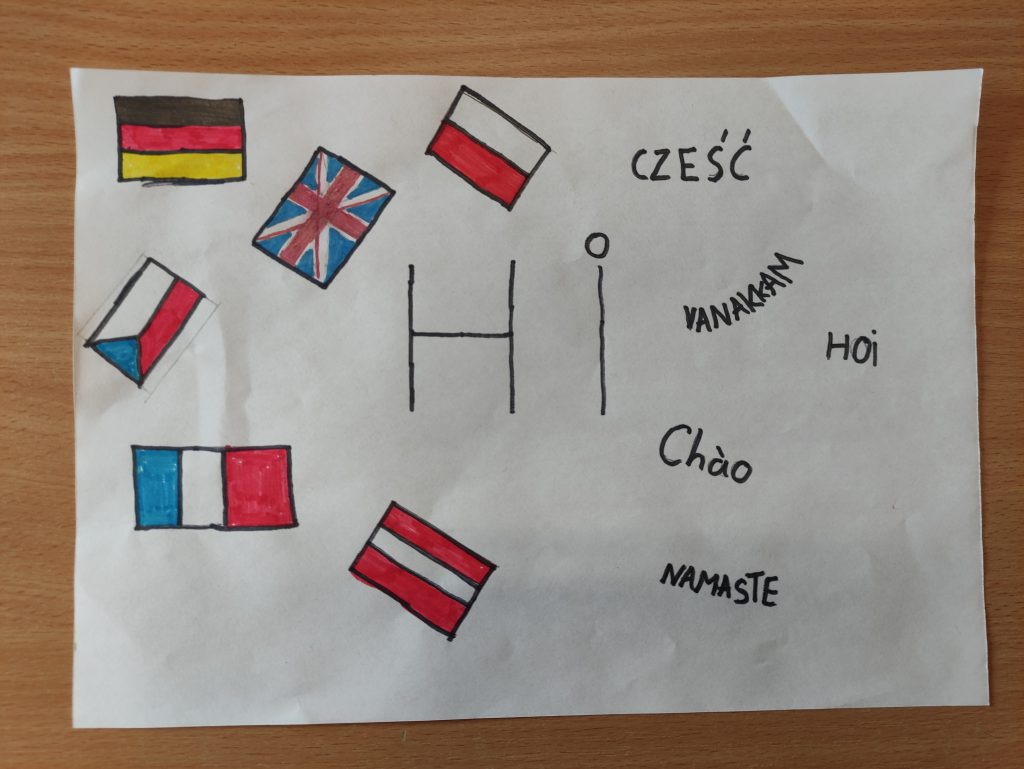 CZEŚĆ
Hi
VANAKKAM
HOi
Chào
NAMASTE